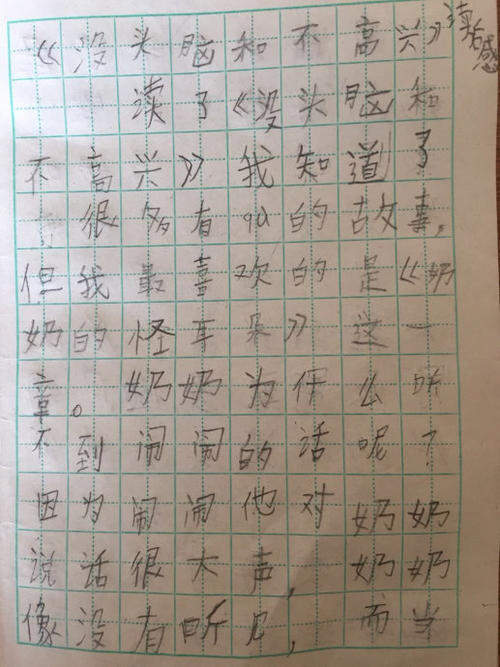 《没头脑和不高兴》读后感
读了《没头脑和
不高兴》我知道了
很多有qu的故事,
但我最喜欢的是《奶
奶的怪耳朵》这一
章。奶奶为什么听
不到闹闹的话呢?
因为闹闹他对奶奶
说话很大声,奶奶
像没有听见,而当